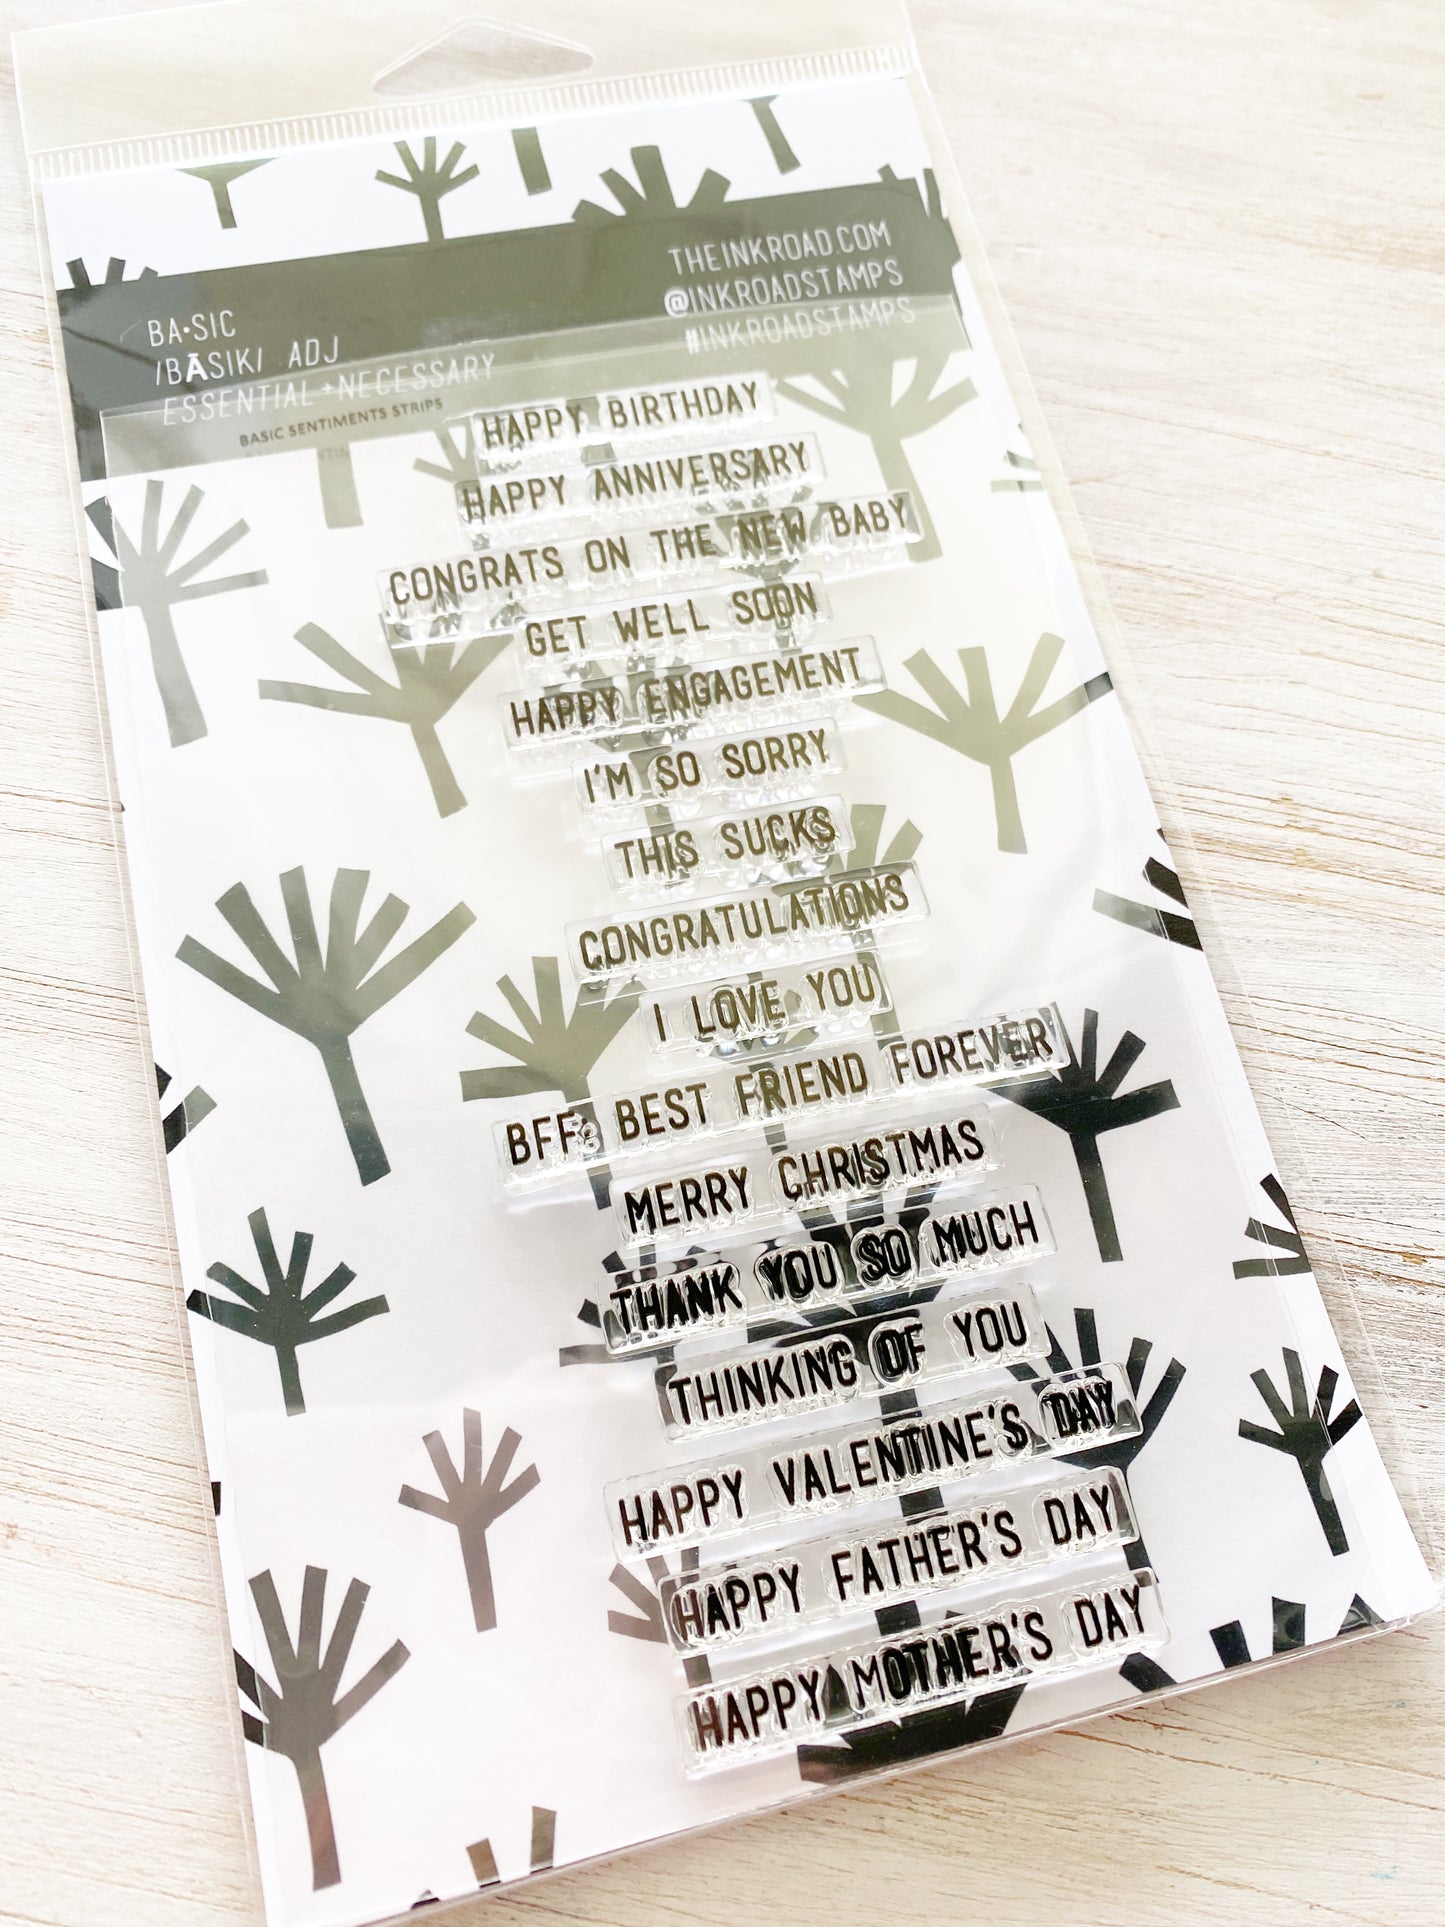 THEINKROAD.COM
@INKROADSTAMPS
#INKROADSTAMPS
BA•SIC
/BĀSIK/ ADJ
ESSENTIAL+NECESSARY
BASIC SENTIMENTS STRIPS
HAPPY BIRTHDAY
HAPPY ANNIVERSARY
CONGRATS ON THE NEW BABY
GET WELL SOON
HAPPY ENGAGEMENT
I'M SO SORRY
THIS SUCKS
CONGRATULATIONS
I LOVE YOU
BFF: BEST FRIEND FOREVER
MERRY CHRISTMAS
THANK YOU SO MUCH
THINKING OF YOU
HAPPY VALENTINE'S DAY
HAPPY FATHER'S DAY
HAPPY MOTHER'S DAY